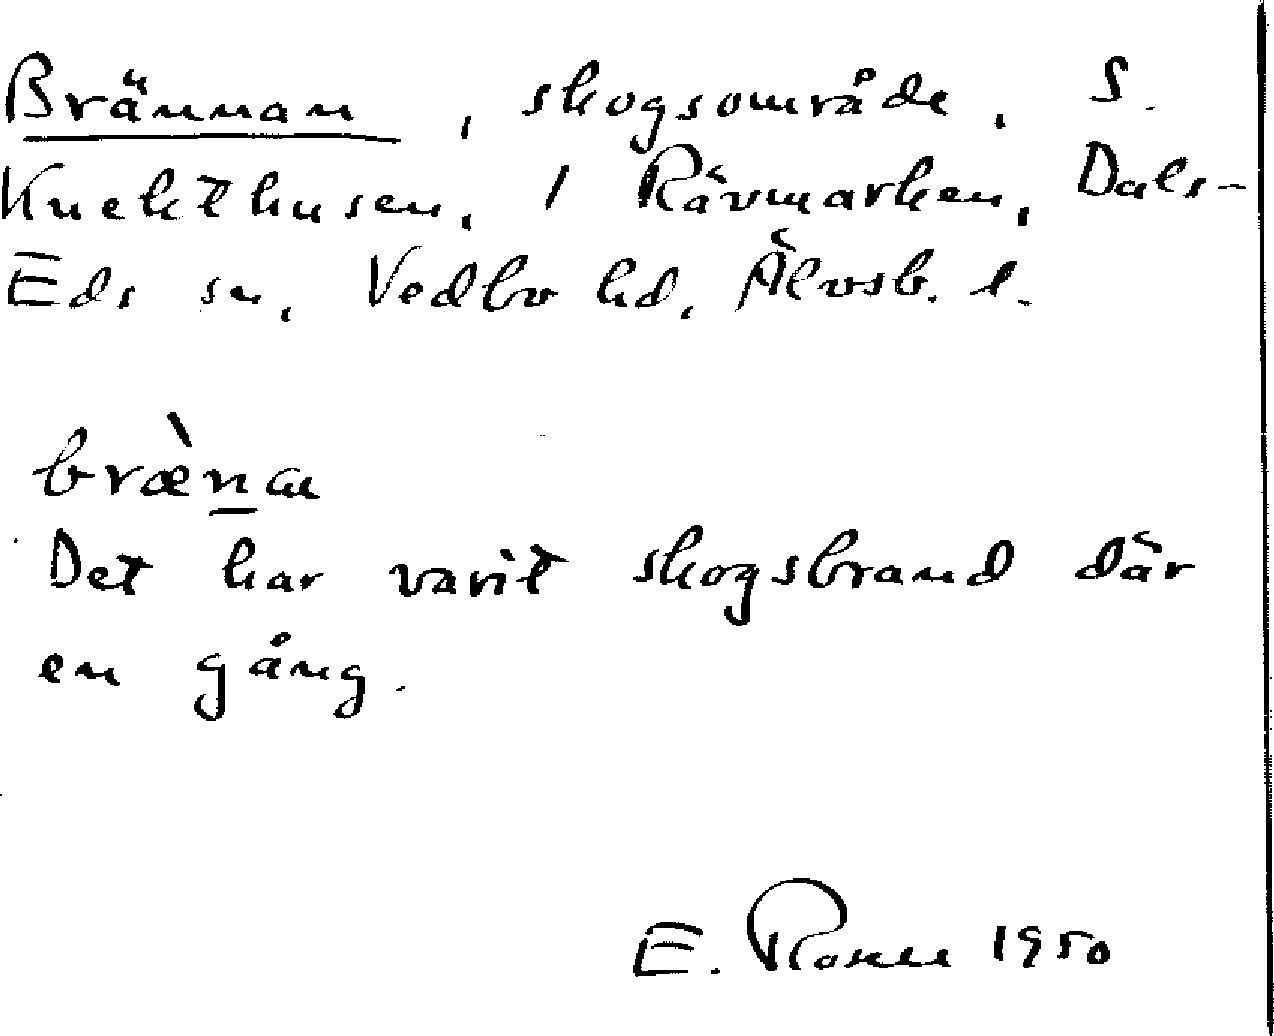 Brännan, skogsområde, S.
Knekthusen, 1 Rävmarken, Dals-
Eds sn, Vedbo hd, Älvsb. l.
bræ̀nan
Det har varit skogsbrand där
en gång.
E. Rosen 1950